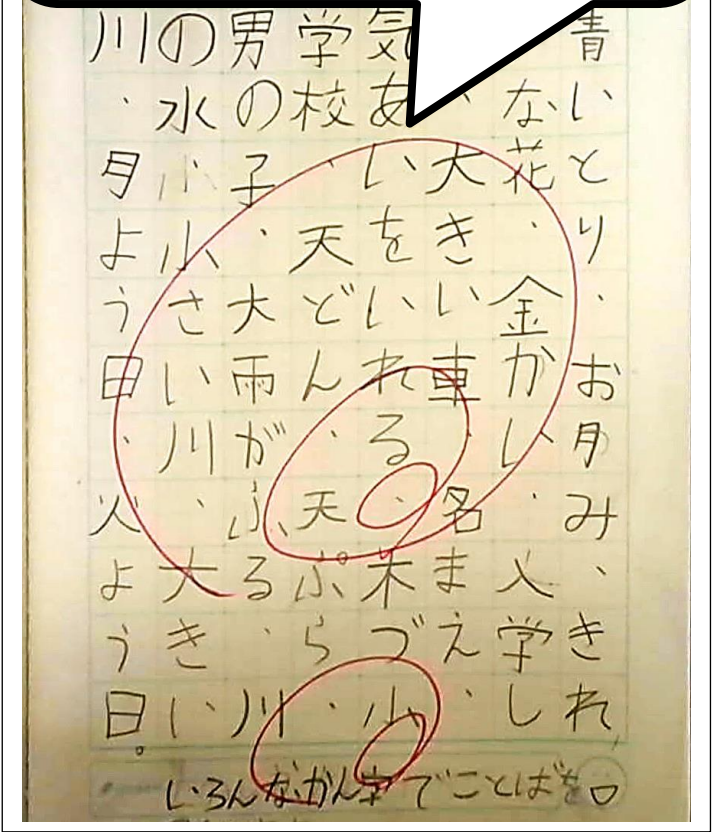 青いとり、お月み、きれ
な花、金かい、入学し
、大きい車、名まえ、
気あいをいれる、木づ、小
学校、天どん、天ぷら、
男の子、大雨がふる、川
の水、小さい川、大きい
川、月よう日、火よう日。
いろんなかん字でことばを